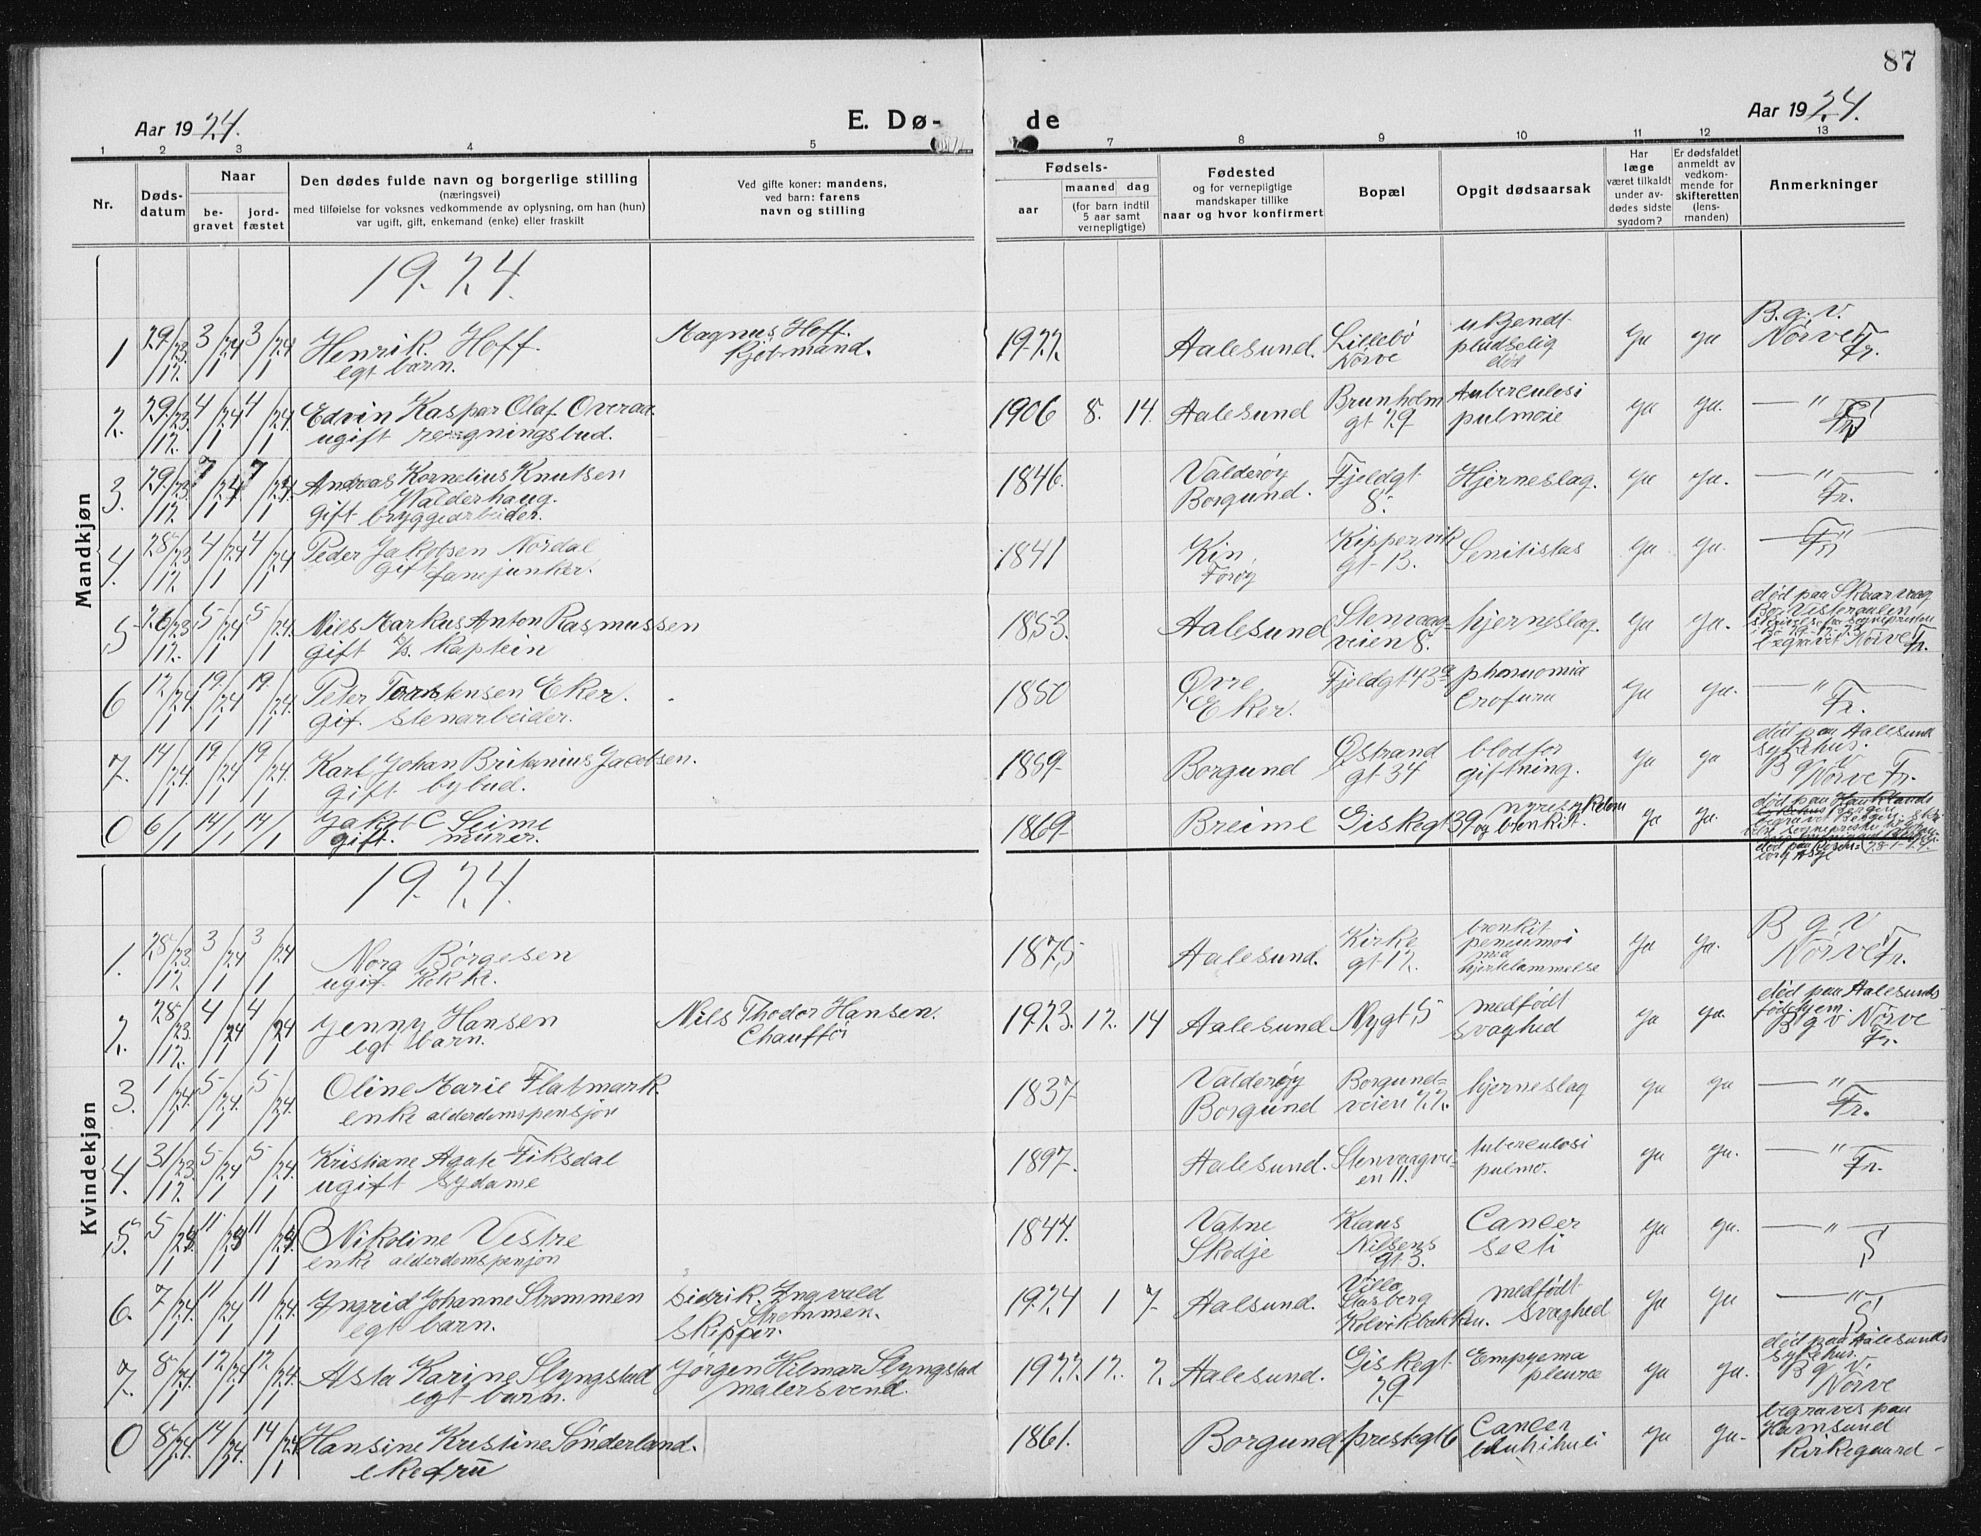 87
Aar 1924.
E. Dø-
de
Aar 1924.
1 2 3 4 5 7 8 9 10 11 12 13
Nr.
Døds-
datum
Naar
be-
gravet
jord-
fæstet
Den dødes fulde navn og borgerlige stilling
(næringsvei)
med tilføielse for voksnes vedkommende av oplysning, om han (hun)
var ugift, gift, enkemand (enke) eller fraskilt
Ved gifte koner: mandens,
ved barn: farens
navn og stilling
Fødsels-
aar
maaned dag
(for barn indtil
5 aar samt
vernepligtige)
Fødested
og for vernepligtige
mandskaper tillike
naar og hvor konfirmert
Bopæl
Opgit dødsaarsak
Har
læge
været tilkaldt
under av-
dødes sidste
sygdom?
Er dødsfaldet
anmeldt av
vedkom-
mende for
skifteretten
(lens-
manden)
Anmerkninger
Mandkjøn
1924.
1 29/12 23. 3/1 24 3/1 24. Henrik Hoff.
egt barn.
Magnus Hoff.
kjøbmand.
1922. Aalesund. Lillebö
Nörve
ukjendt
pludselig
död
ja ja B.g.v.
Nörve Fr.
2. 29/12 23. 4/1 24 4/1 24. Edvin Kaspar Olaf Overaa
ugift regningsbud.
1906 8. 14. Aalesund Brunholm
gt 29
Tuberculosi
pulmoie
ja ja. — " —
3. 29/12 23. 7/1 24 7/1 24. Andreas Kornelius Knutsen
Valderhaug.
gift bryggearbeider.
1846. Valderöy
Borgund.
Fjeldgt
8.
Hjerneslag. ja ja. — " —
Fr.
4. 28/12 23 4/1 24 4/1 24 Peder Jakobsen Nordal
gift fanejunker.
1841 Kin
Kippervik
gt 13.
Senitistas ja ja. — " —
Fr
5 26/12 23 5/1 24 5/1 24. Nils Markus Anton Rasmussen
gift kaptein
1853. Aalesund Stenvaag-
veien 8.
hjerneslag. ja ja. död paa Skaarvaag
begravet Nörve Fr.
6 12/1 24. 19/1 24 19/1 24. Peter Torstensen Eker.
gif. stenarbeider.
1850 Övre
Eker.
Fjeldgt 43a phenuomia
Crofura
ja ja. — " —
Fr.
7. 14/1 24. 19/1 24 19/1 24. Karl Johan Britanius Jacobsen.
gift. bybud.
1859 Borgund Östrand
gt 34
blodfor
giftning.
ja ja död paa Aalesund
sykehus.
B g v
Nörve Fr.
0 6/1 14/1 14/1 Jakob C Seime
gift. murer.
1869 Breime Giskegt 39 nyresykdom
og bronkit.
ja ja. död paa Hauklands
Kvindekjøn
1924.
1. 28/12 23 3/1 24 3/1 24 Nora Börgesen
ugif. kokke.
1875 Aalesund. Kirke
gt 12.
bronkit
peneumoi
med
hjertelammelse
ja ja. B g v
Nörve Fr.
2. 28/12 23 4/1 24 4/1 24 Jenny Hansen
egt barn.
Nils Thodor Hansen.
Chauffør
1923. 12. 14 Aalesund Nygt 5 medfödt
svaghed
ja ja. död paa Aalesunds
födehjem.
B g v Nörve
Fr.
3. 1/1 24. 5/1 24. 5/1 24. Oline Marie Flatmark.
enke alderdomspensjon
1837 Valderöy
Borgund
Borgund-
veien 22.
hjerneslag ja ja — " —
Fr.
4. 31/12 23 5/1 24 5/1 24. Kristiane Agate Fiksdal
ugift sydame
1897. Aalesund. Stenvaagvei-
en 11.
tuberculosi
pulmo.
ja ja. — " —
Fr.
5. 5/1 24 11/1 24 11/1 24 Nikoline Vestre
enke alderdomspensjon
1844. Vatne
Skodje
Klaus
Nilsens
gt 3.
Cancer
secti
ja ja. — " —
S
6. 7/1 24 11/1 24 11/1 24. Ingrid Johanne Strømmen
egt barn.
Sidrik. Ingvald
Strømmen.
Skipper.
1924 1 7 Aalsund. Villa
Storberg
Kolvikbakken.
medfödt
svaghed
ja ja — " —
S
7. 8/1 24. 12/1 24 12/1 24. Asta Karine Slyngstad
egt barn.
Jørgen Hilmar Slyngstad
malersvend.
1922. 12. 2. Aalesund. Giskegt
29
Empyema
pleuræ
ja ja. död paa Aalesunds
sykehus.
B g v.
Nörve
0 8/1 24. 14/1 24. 14/1 24 Hansine Kristine Sønderland.
ekefrü
1861. Borgund preskgt 6 Cancer
ja ja. begraves paa
Hamsund
kirkegaard